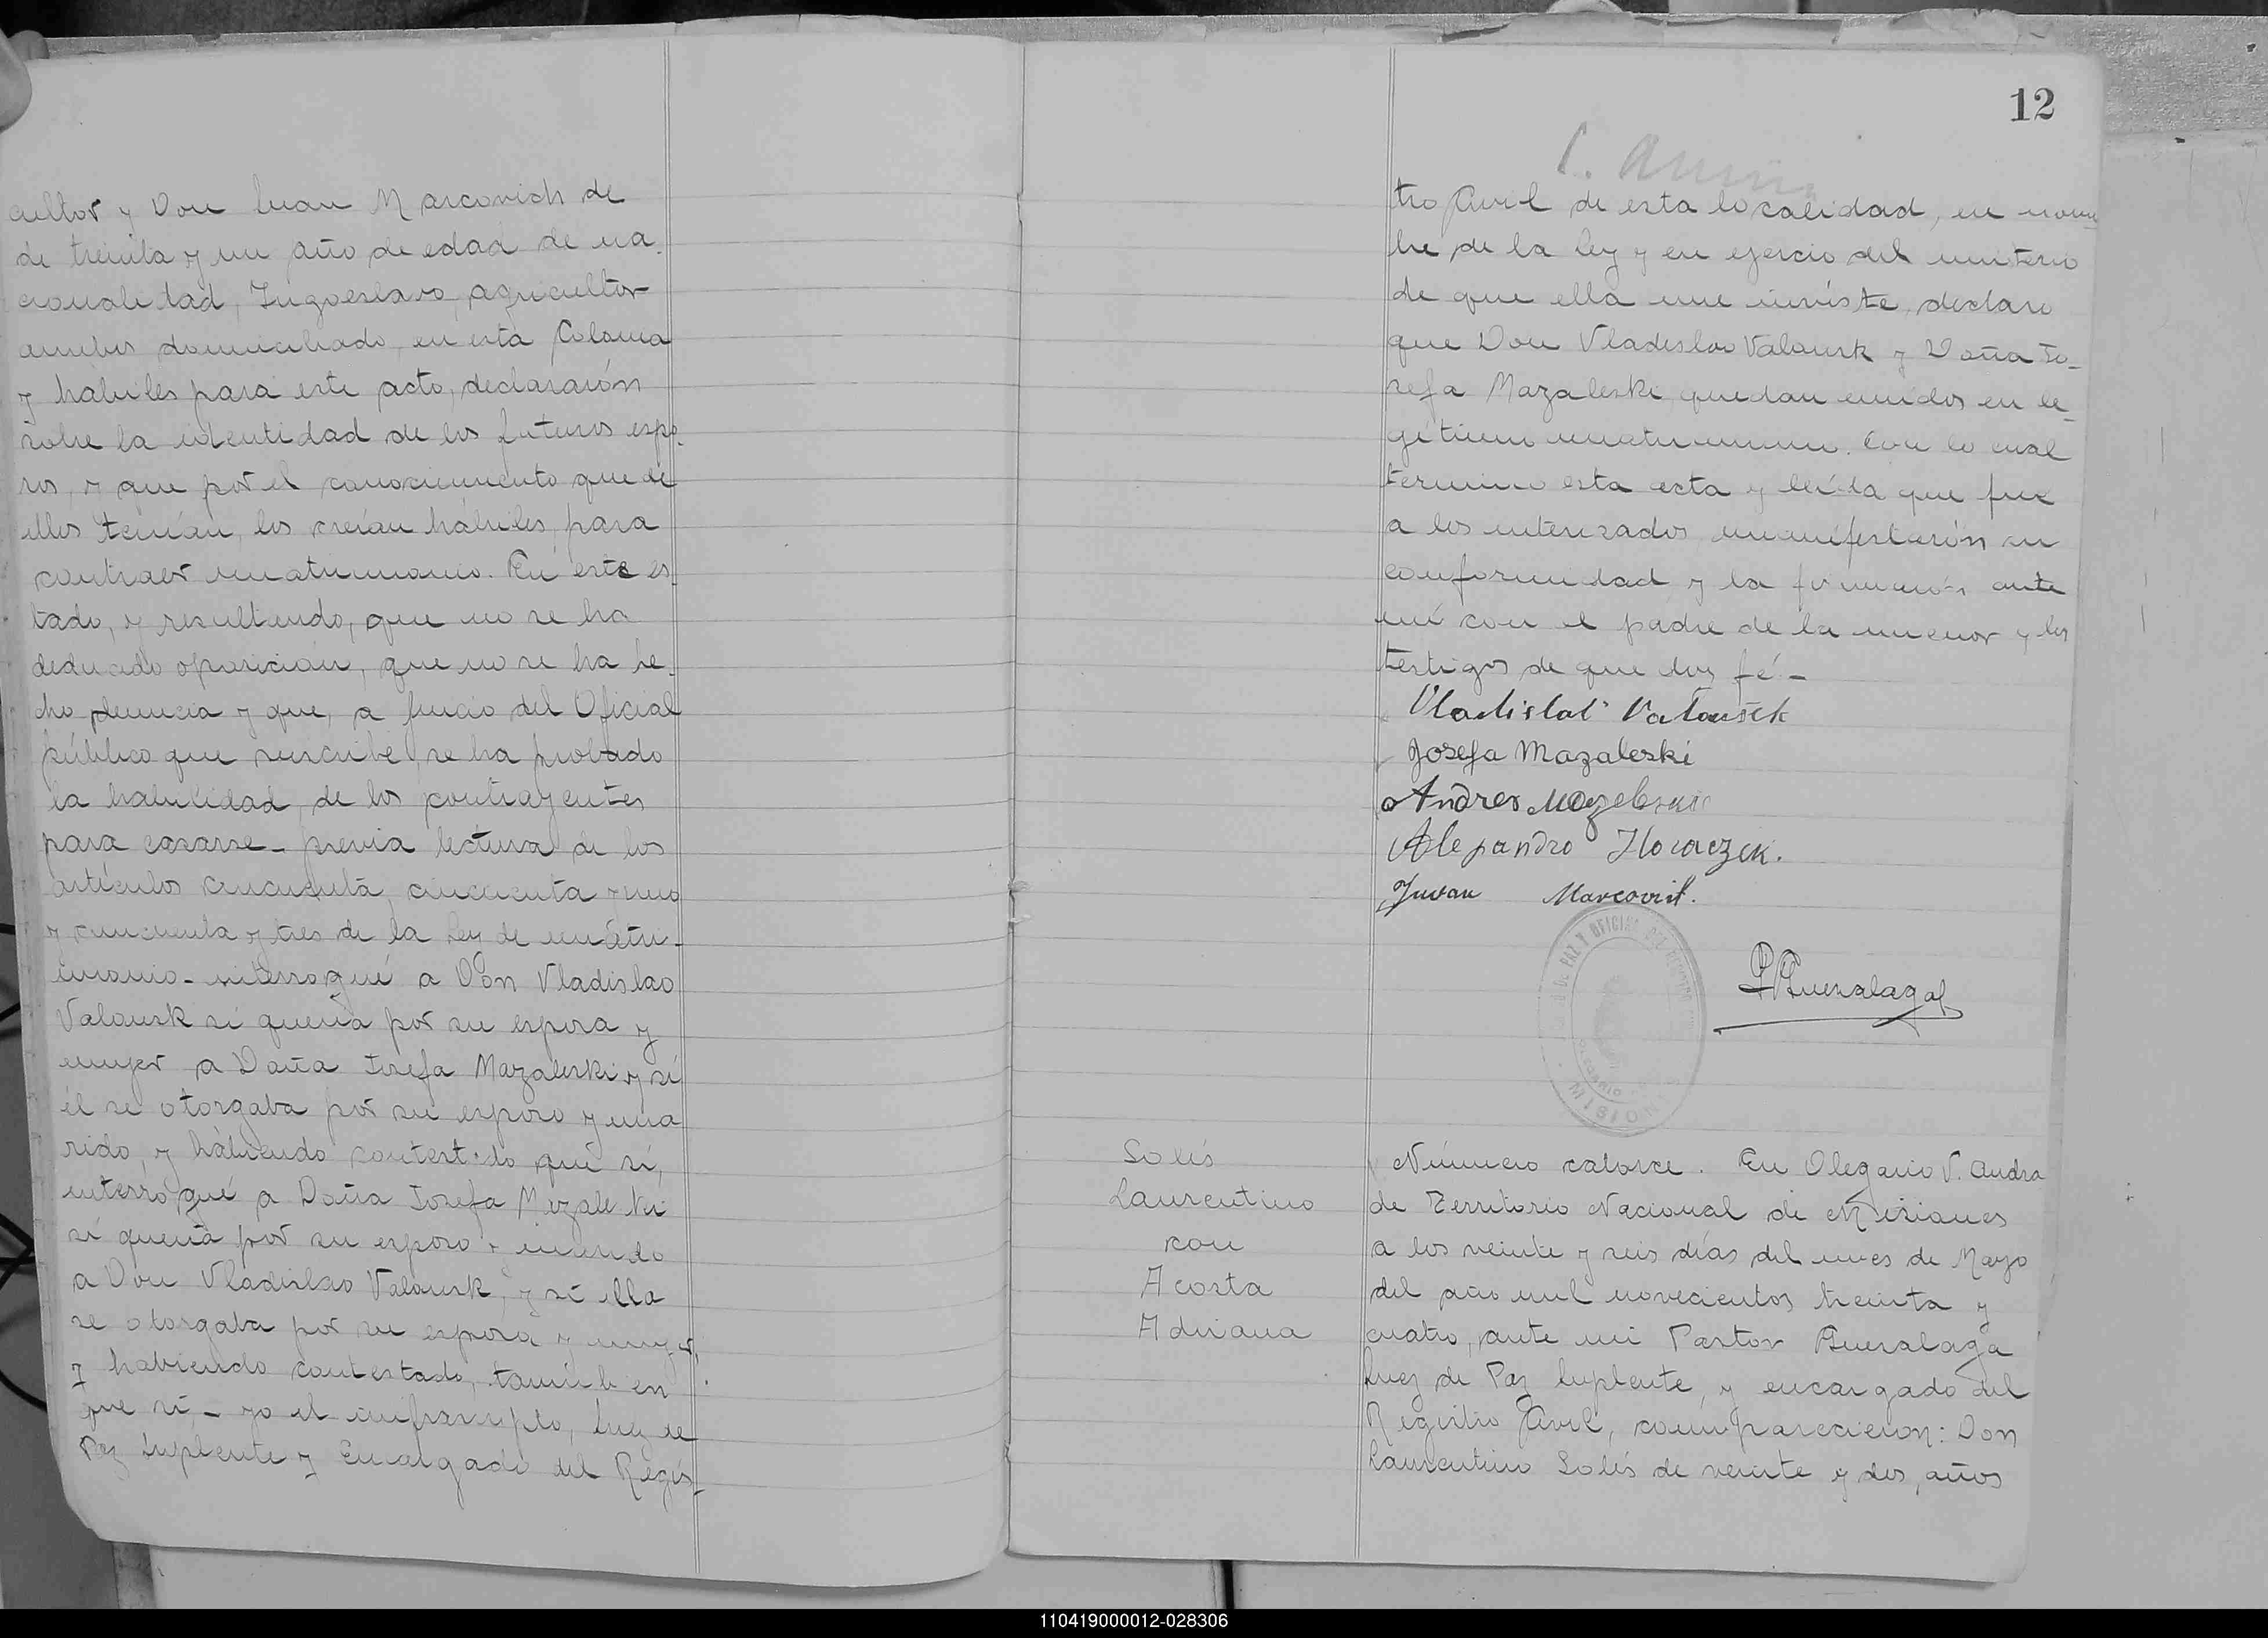 cultor y Don Juan Marcovich de
de treinta y un año de edad de na-
cionalidad, Jugoeslavo, agricultor
ambos domiciliado, en esta Colonia
y hábiles para este acto, declararón
sobre la identidad de los futuros espo-
sos, y que por el conocimiento que de
ellos tenían, los creían hábiles, para
contraer matrimonio. En este es-
tado, y resultando, que no se ha
deducido oposición, que no se ha he-
cho denuncia y que, a juicio del Oficial
público que suscribe, se ha probado
la habilidad, de los contrayentes
para casarse - previa lectura de los
artículos cincuenta, cincuenta y uno
y cincuenta y tres de la Ley de matri-
monio - interroqué a Don Vladislao
Valousk si quería por su esposa y
mujer a Doña Josefa Mazaleski y si
él se otorgaba por su esposo y ma
rido, y habiendo contestado que sí,
interroqué a Doña Josefa Mazaleski
si quería por su esposo y marido
a Don Vladislao Valousk, y si ella
se otorgaba por su esposa y mujer,
y habiendo contestado, tambien
que sí, - yo el infrascripto, Juez de
Paz Suplente y Encargado del Regis-
12
tro Civil de esta localidad, en nom
bre de la ley y en ejercio del ministerio
de que ella me inviste, declaro
que Don Vladislao Valousk y Doña Jo-
sefa Mazaleski, quedan unidos en le-
gítimo matrimonio. Con lo cual
termino esta acta y leída que fue
a los interezados, manifestarón su
conformidad y la firmarón ante
mí con el padre de la menor y los
testigos de que doy fé.-
Vladislav Valoušek
Josefa Mazaleski
Andres
Alejandro
Juvan Marcovich.
JUEZ DE PAZ Y OFICIAL DEL REGISTRO
MISIONES
Solís
Laurentino
con
Acosta
Adriana
Número catorce. En Olegario V. Andra
de Territorio Nacional de Misiones
a los veinte y seis días del mes de Mayo
del año mil novecientos treinta y
cuatro, ante mi Pastor
Juez de Paz Suplente, y encargado del
Registro Civil, comparecieron: Don
Laurentino Solís de veinte y dos, años
110419000012-028306